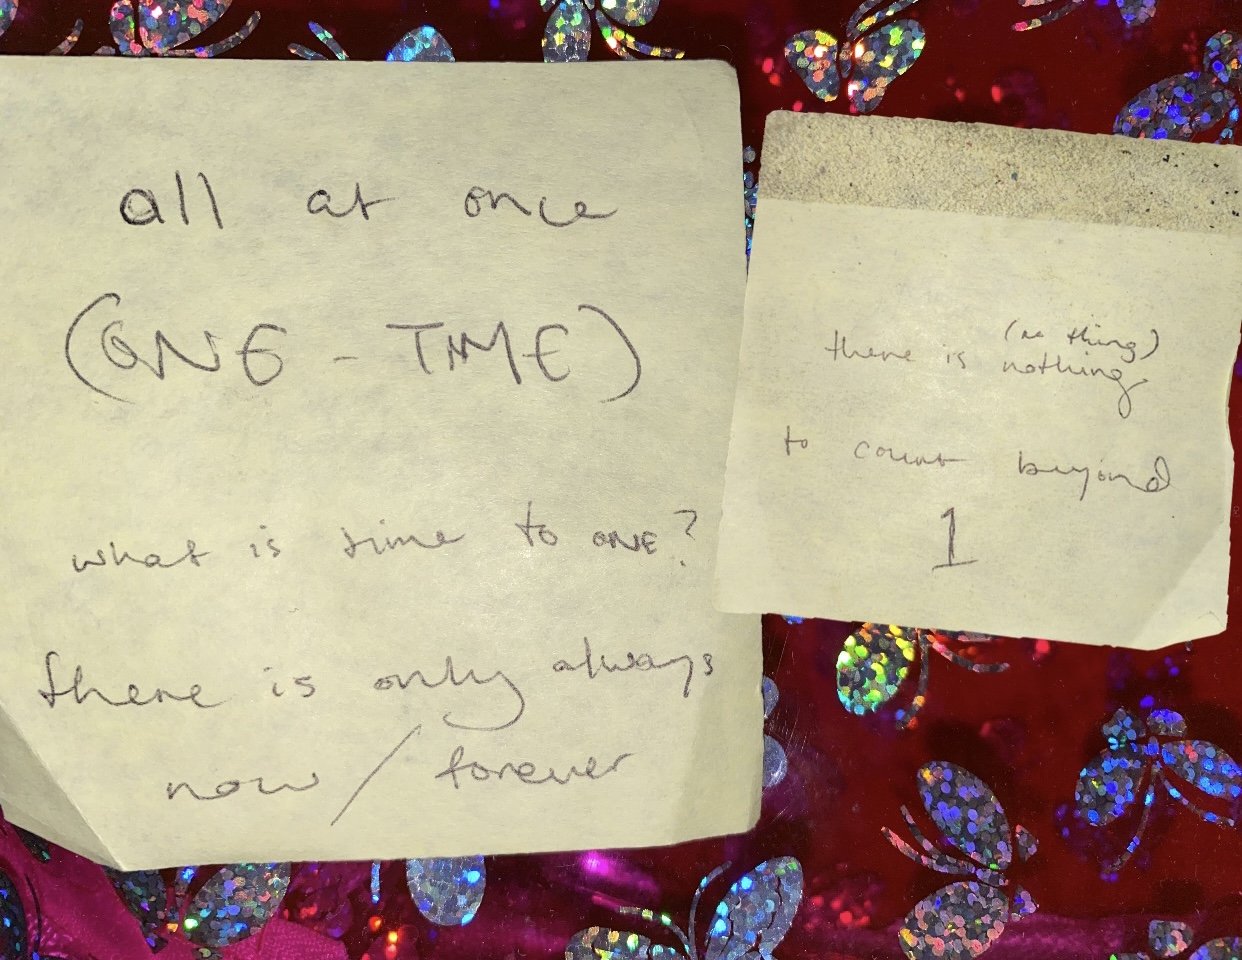 all at once
(ONE - TIME)
what is time to ONE?
there is only always
now / forever
(no thing)
there is nothing
to count beyond
1